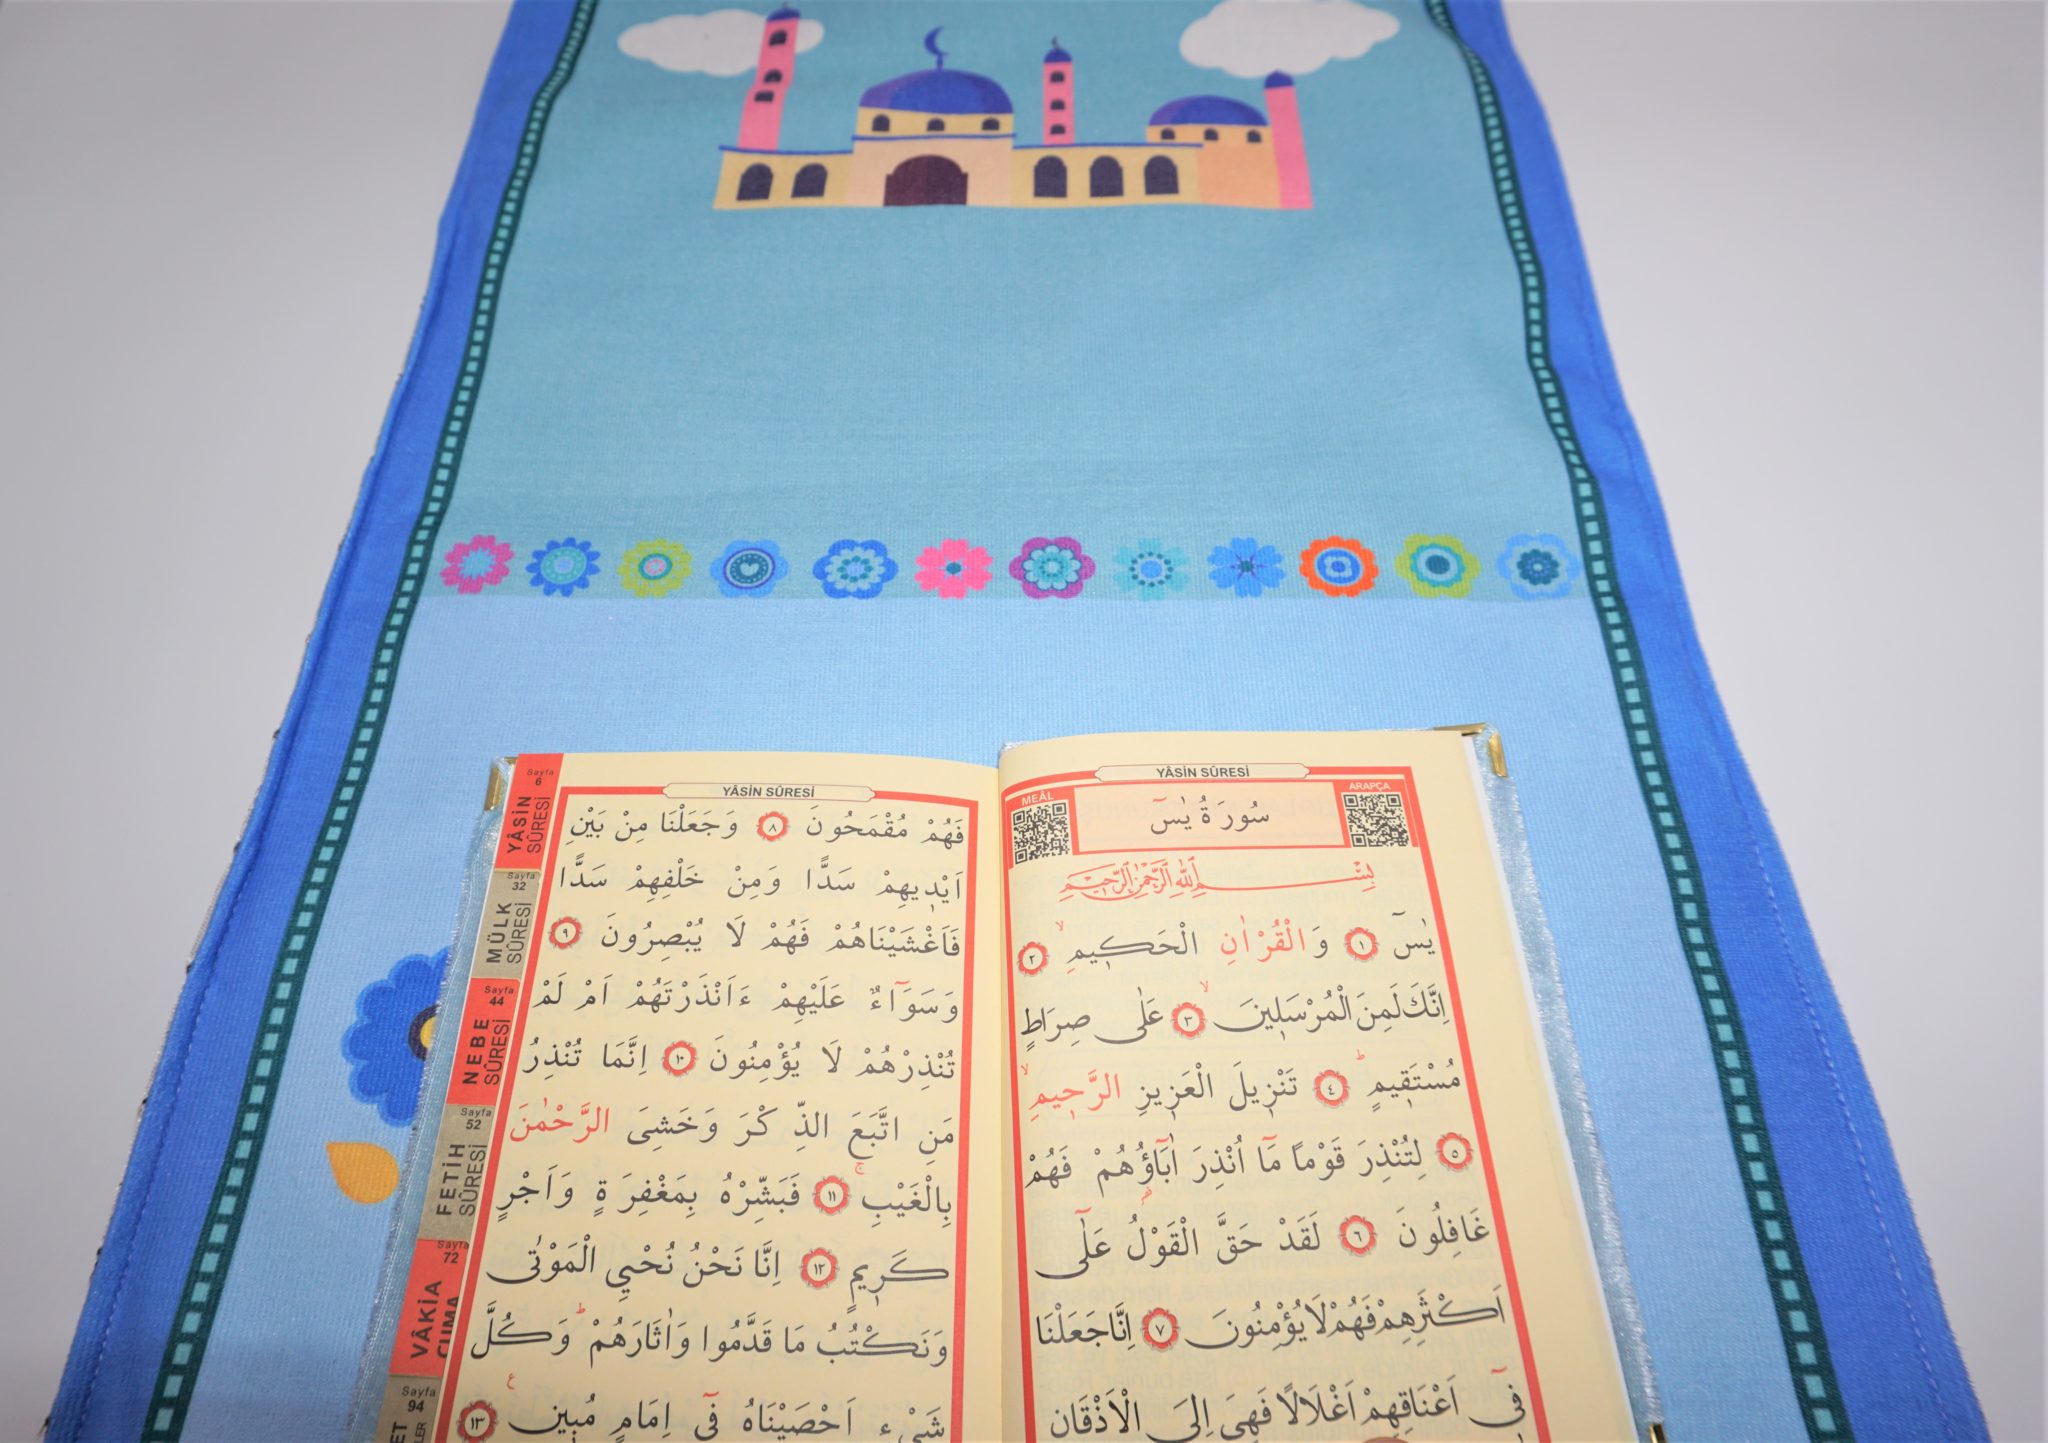 YÂSİN SÛRESİ
MEÂL
ARAPÇA
سُورَةُ يٰسٓ
بِسْمِ اللّٰهِ الرَّحْمٰنِ الرَّحِيمِ
يٰسٓ ﴿١﴾ وَالْقُرْاٰنِ الْحَكِيمِۙ ﴿٢﴾
اِنَّكَ لَمِنَ الْمُرْسَلِينَۙ ﴿٣﴾ عَلٰى صِرَاطٍ
مُسْتَقِيمٍۜ ﴿٤﴾ تَنْزِيلَ الْعَزِيزِ الرَّحِيمِۙ
﴿٥﴾ لِتُنْذِرَ قَوْمًا مَٓا اُنْذِرَ اٰبَٓاؤُ۬هُمْ فَهُمْ
غَافِلُونَ ﴿٦﴾ لَقَدْ حَقَّ الْقَوْلُ عَلٰٓى
اَكْثَرِهِمْ فَهُمْ لَا يُؤْمِنُونَ ﴿٧﴾ اِنَّا جَعَلْنَا
فِٓي اَعْنَاقِهِمْ اَغْلَالًا فَهِيَ اِلَى الْاَذْقَانِ
YÂSİN SÛRESİ
فَهُمْ مُقْمَحُونَ ﴿٨﴾ وَجَعَلْنَا مِنْ بَيْنِ
اَيْدِيهِمْ سَدًّا وَمِنْ خَلْفِهِمْ سَدًّا
فَاَغْشَيْنَاهُمْ فَهُمْ لَا يُبْصِرُونَ ﴿٩﴾
وَسَوَٓاءٌ عَلَيْهِمْ ءَاَنْذَرْتَهُمْ اَمْ لَمْ
تُنْذِرْهُمْ لَا يُؤْمِنُونَ ﴿١٠﴾ اِنَّمَا تُنْذِرُ
مَنِ اتَّبَعَ الذِّكْرَ وَخَشِيَ الرَّحْمٰنَ
بِالْغَيْبِۚ ﴿١١﴾ فَبَشِّرْهُ بِمَغْفِرَةٍ وَاَجْرٍ
كَرِيمٍ ﴿١٢﴾ اِنَّا نَحْنُ نُحْيِ الْمَوْتٰى
وَنَكْتُبُ مَا قَدَّمُوا وَاٰثَارَهُمْۜ وَكُلَّ
شَيْءٍ اَحْصَيْنَاهُ فِٓي اِمَامٍ مُبِينٍ۟ ﴿١٣﴾
Sayfa
6
YÂSİN
SÛRESİ
Sayfa
32
MÜLK
SÛRESİ
Sayfa
44
NEBE
SÛRESİ
Sayfa
52
FETİH
SÛRESİ
Sayfa
72
VÂKIA
CUMA
Sayfa
94